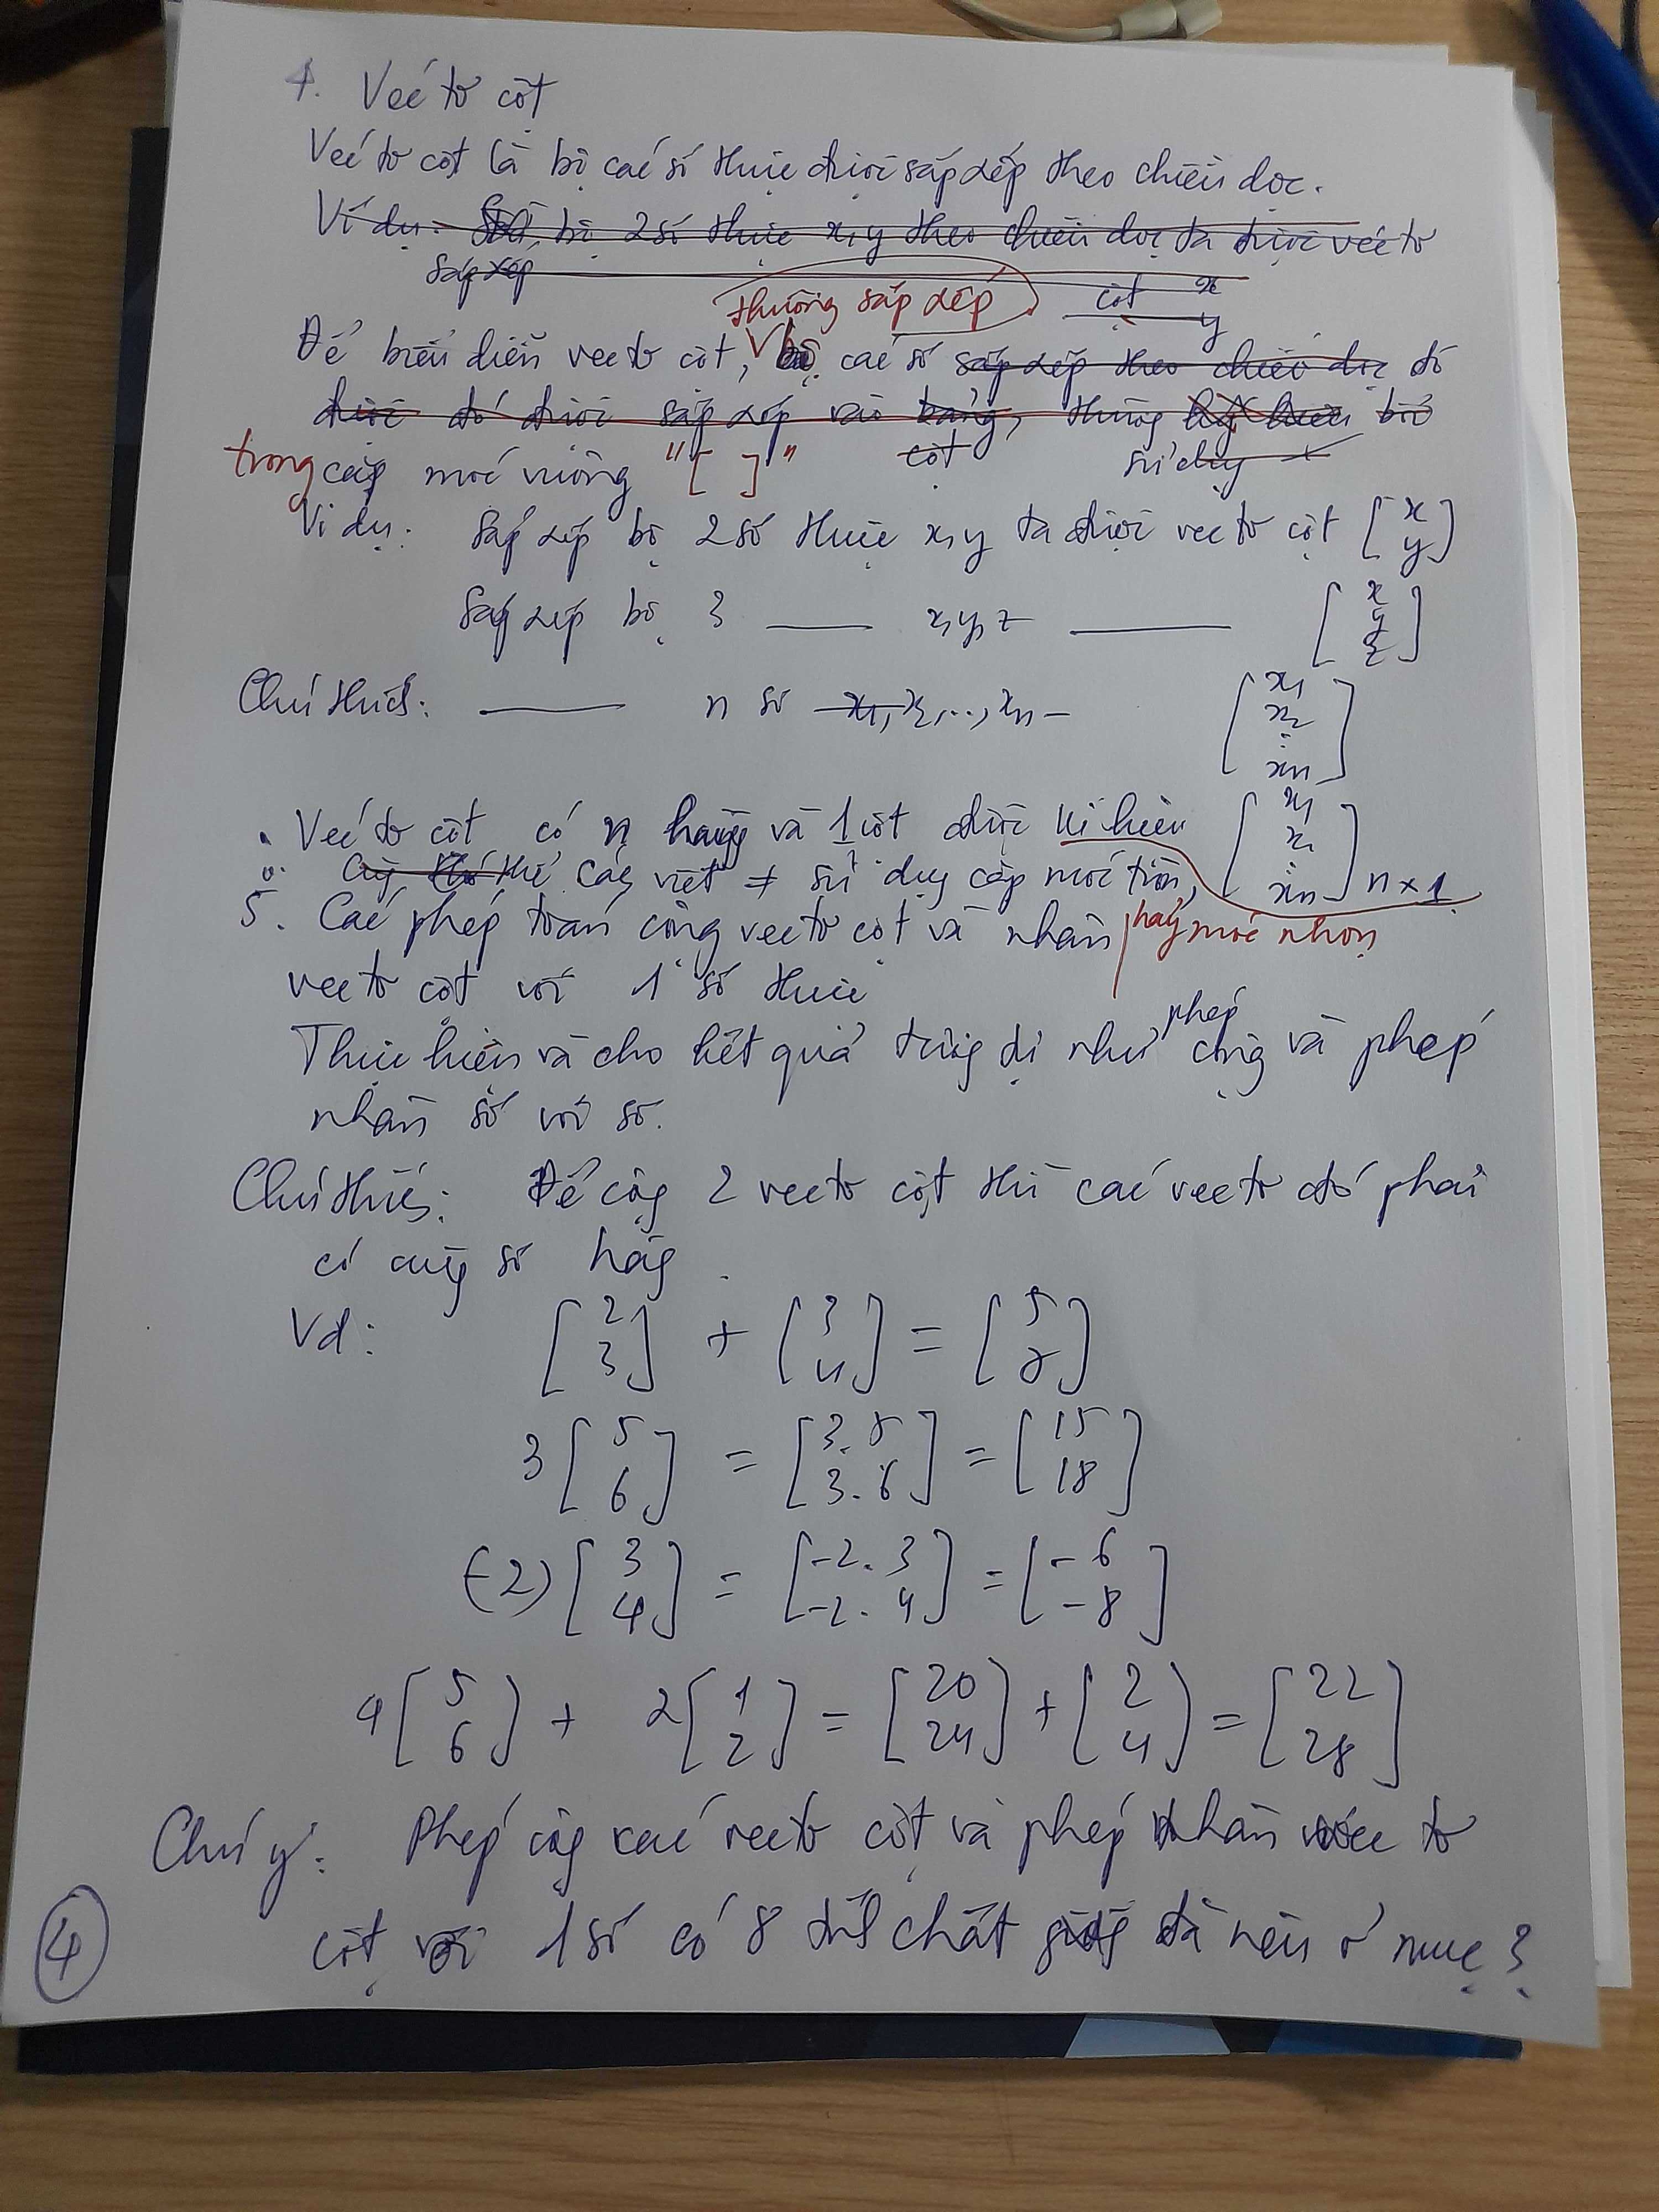 4. Véc tơ cột
Véc tơ cột là bộ các số thực được sắp xếp theo chiều dọc.
Ví dụ: bộ 2 số thực x, y theo chiều dọc ta được véc tơ
sắp xếp
thường sắp xếp cột x
y
Để biểu diễn vec tơ cột, các số sắp xếp theo chiều dọc đó
được đó được sắp xếp vào bảng, thường bởi
trong cặp móc vuông "[ ]" cột sử dụng
Ví dụ: Sắp xếp bộ 2 số thực x, y ta được vec tơ cột [x y]
Sắp xếp bộ 3 —— x, y, z —— [x y z]
Chú thích: —— n số x1, x2, ..., xn — [x1 x2 ⋮ xn]
• Véc tơ cột có n hàng và 1 cột được kí hiệu [x1 x2 ⋮ xn] n × 1
cách viết ≠ sử dụng cặp móc tròn,
hay móc nhọn
5. Các phép toán cộng vec tơ cột và nhân
vec tơ cột với 1 số thực
Thực hiện và cho kết quả tương tự như phép cộng và phép
nhân số với số.
Chú thích: Để cộng 2 vec tơ cột thì các vec tơ đó phải
có cùng số hàng.
Vd: [2 3] + [3 4] = [5 7]
3 [5 6] = [3.5 3.6] = [15 18]
(-2) [3 4] = [-2.3 -2.4] = [-6 -8]
4 [5 6] + 2 [1 2] = [20 24] + [2 4] = [22 28]
Chú ý: Phép cộng các vec tơ cột và phép nhân véc tơ
cột với 1 số có 8 tính chất giống đã nêu ở mục 3.
4